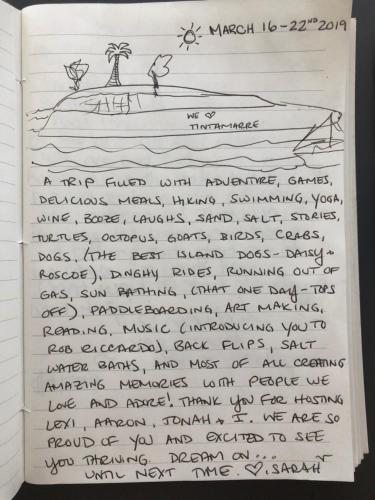 MARCH 16-22ND 2019
WE ♡
TINTAMARRE
A TRIP FILLED WITH ADVENTURE, GAMES,
DELICIOUS MEALS, HIKING, SWIMMING, YOGA,
WINE, BOOZE, LAUGHS, SAND, SALT, STORIES,
TURTLES, OCTOPUS, GOATS, BIRDS, CRABS,
DOGS, (THE BEST ISLAND DOGS - DAISY +
ROSCOE), DINGHY RIDES, RUNNING OUT OF
GAS, SUN BATHING, (THAT ONE DAY - TOPS
OFF), PADDLEBOARDING, ART MAKING,
READING, MUSIC (INTRODUCING YOU TO
ROB RICCARDO), BACK FLIPS, SALT
WATER BATHS, AND MOST OF ALL CREATING
AMAZING MEMORIES WITH PEOPLE WE
LOVE AND ADORE! THANK YOU FOR HOSTING
LEXI, AARON, JONAH + I. WE ARE SO
PROUD OF YOU AND EXCITED TO SEE
YOU THRIVING. DREAM ON...
UNTIL NEXT TIME. ♡, SARAH